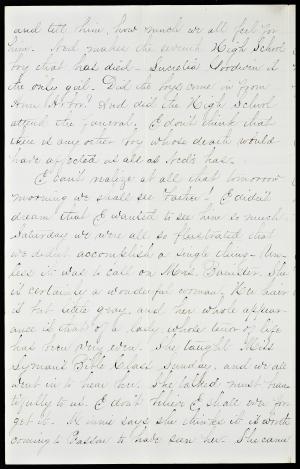 and tell him how much we all feel for
him. Ned makes the seventh High School
boy that has died - Lucretia Goodwin is
the only girl. Did the boys come in from
Ann Arbor? And did the High School
attend the funeral. I don't think that
there is any other boy whose death would
have affected us all as Ned's has.
I can't realize at all that tomorrow
morning we shall see "Father"! I didn't
dream that I wanted to see him so much.
Saturday we were all so frustrated that
we didn't accomplish a single thing - Un-
less it was to call on Mrs. Banister. She
is certainly a wonderful woman. Her hair
is but little gray, and her whole appear-
ance is that of a lady whose tenor of life
has been very even. She taught Miss
Lyman's Bible Class Sunday, and we all
went in to hear her. She talked most beau-
tifully to us. I don't believe I shall ever for-
get it. Minnie says she thinks it is worth
coming to Vassar to have seen her. She came